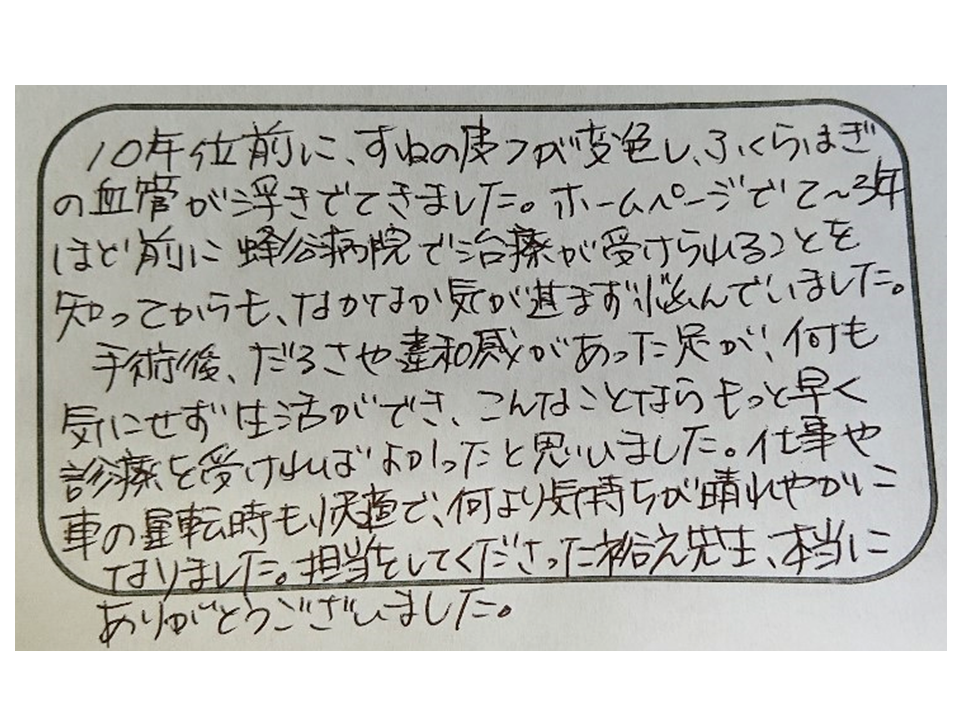 10年位前に、すねの皮フが変色し、ふくらはぎ
の血管が浮きでてきました。ホームページで2～3年
ほど前に蜂谷病院で治療が受けられることを
知ってからも、なかなか気が進まず悩んでいました。
手術後、だるさや違和感があった足が、何も
気にせず生活ができ、こんなことならもっと早く
診療を受ければよかったと思いました。仕事や
車の運転時も快適で、何より気持ちが晴れやかに
なりました。担当をしてくださった裕え先生、本当に
ありがとうございました。